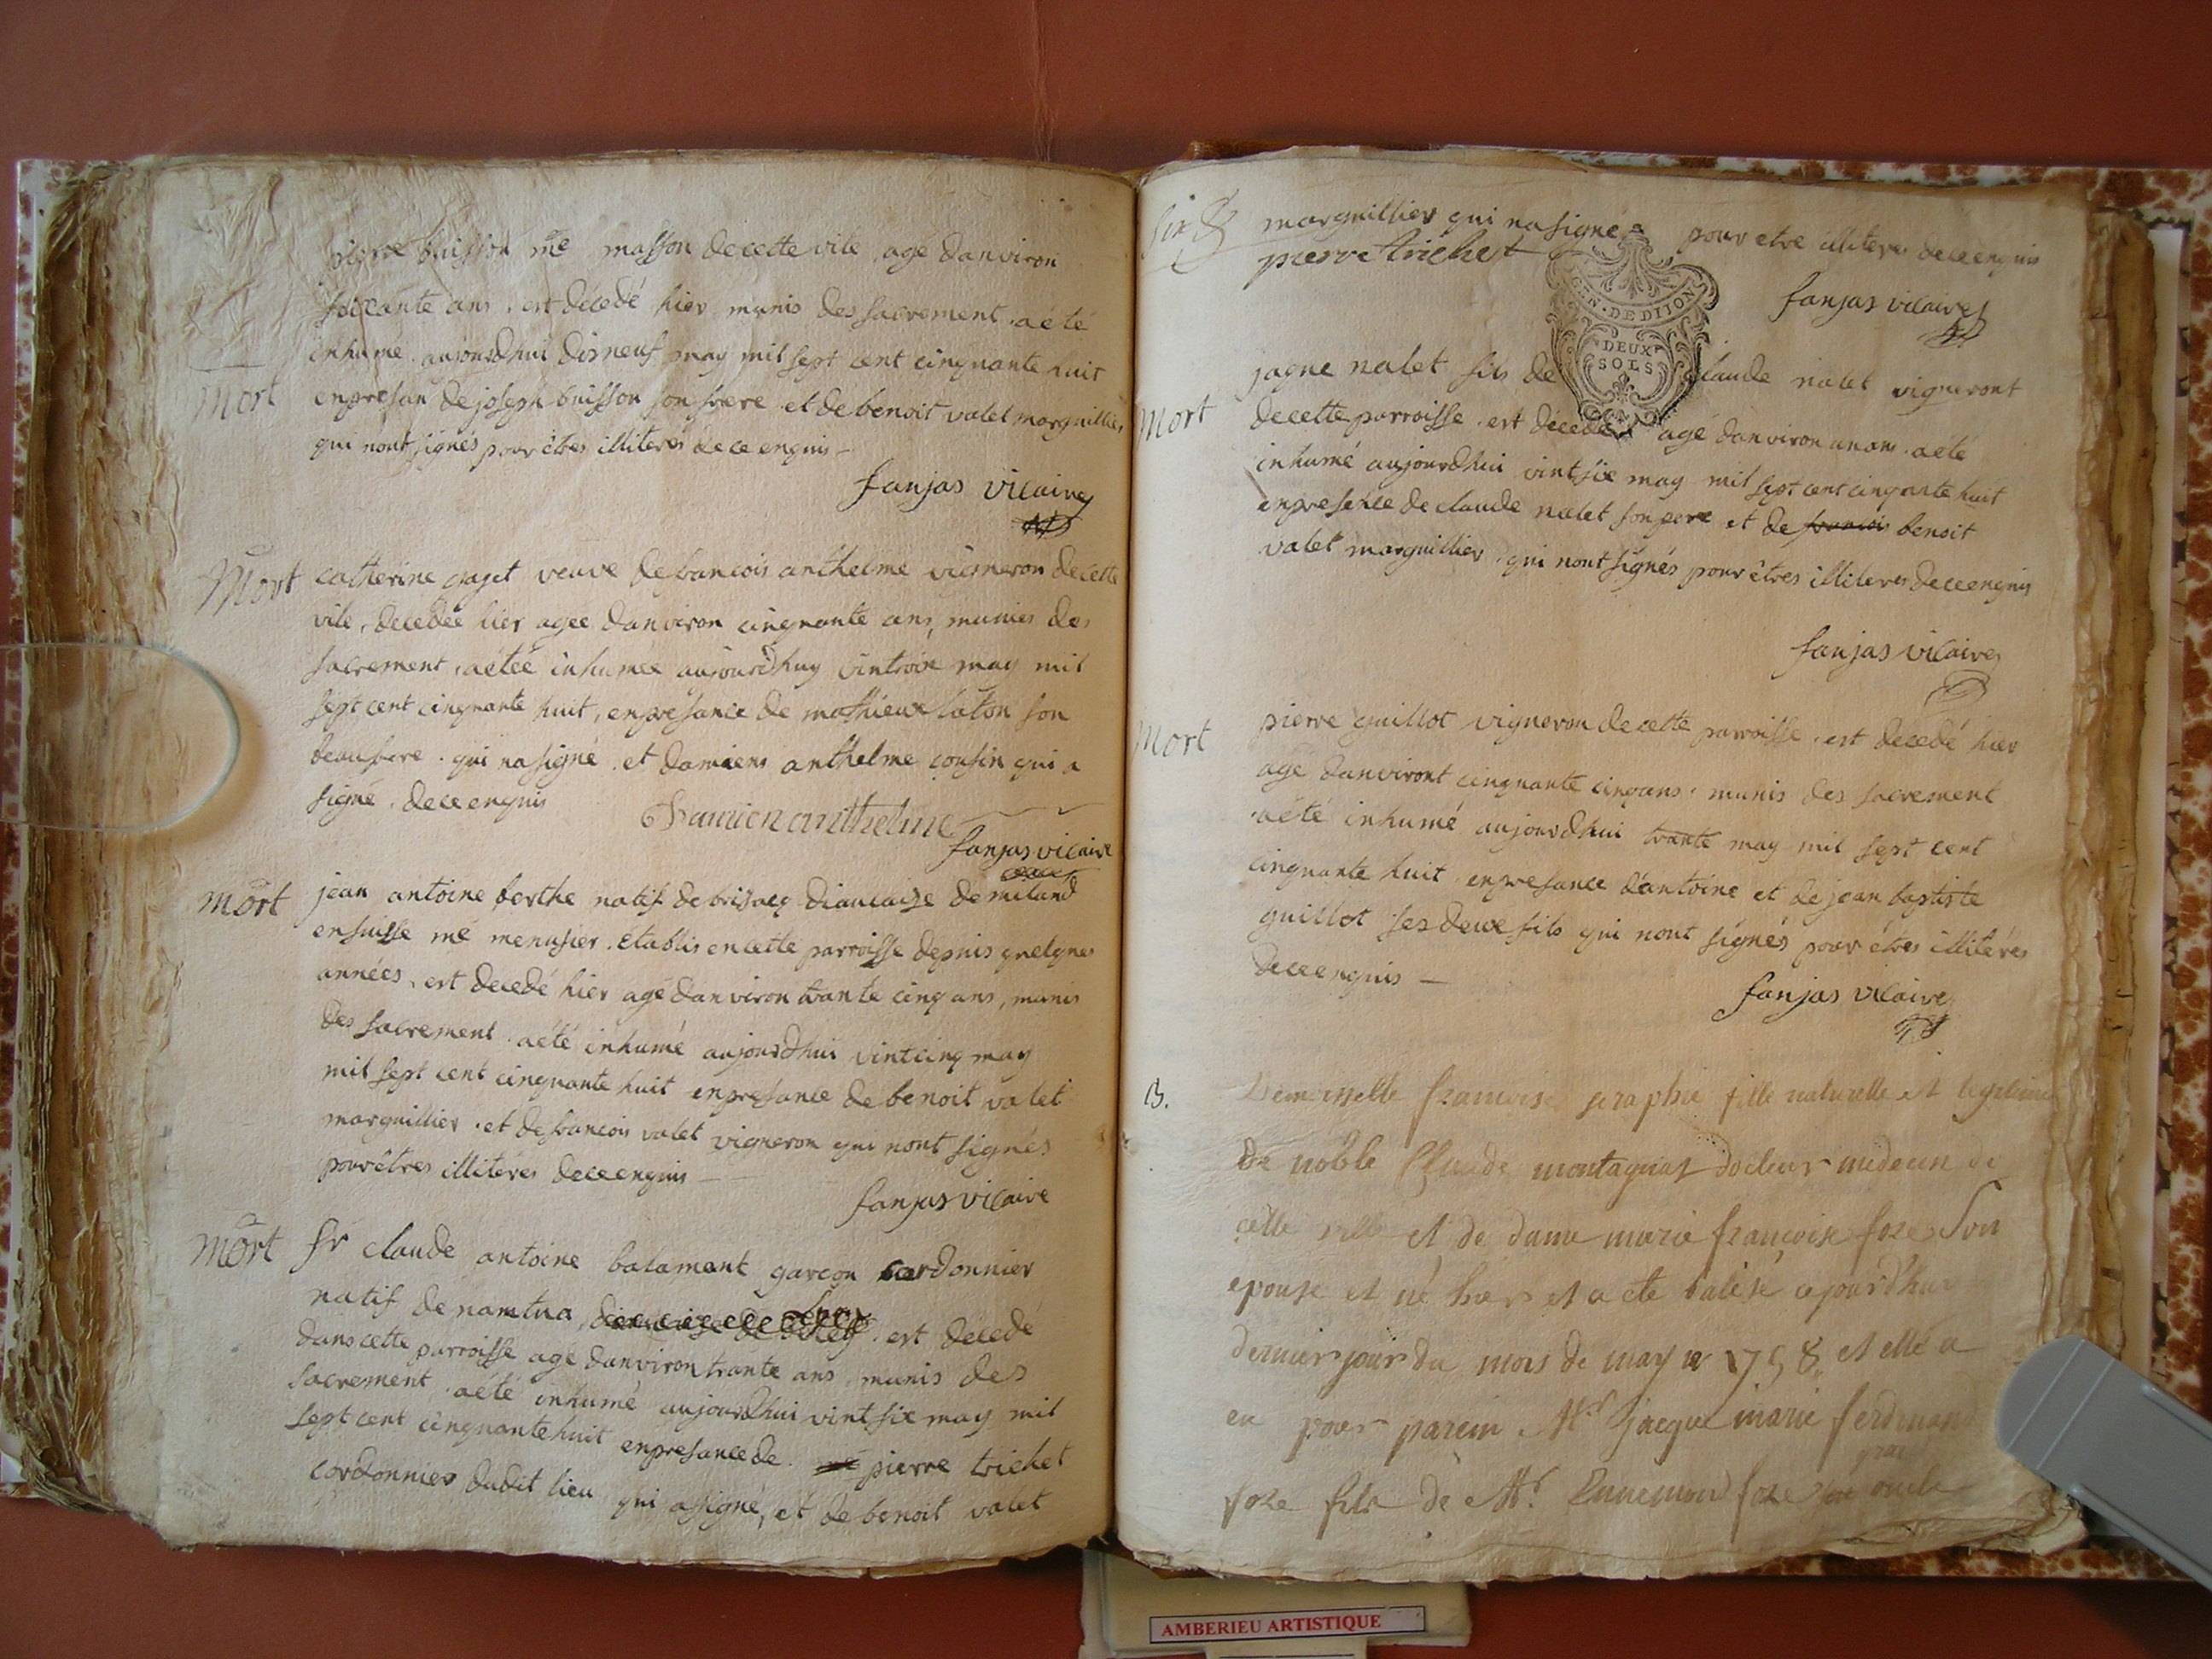 pierre buisson me masson de cette vile agé danviron
soixante ans . est décedé hier munis des sacrement . a été
inhumé aujourdhui disneuf may mil sept cent cinquante huit
Mort
en presan de joseph buisson son frere et de benoit valet marguillier
qui nont signés pour êtres illiterés de ce enquis –
fanjas vicaire
Mort catherine paget veuve de francois anthelme vigneron de cette
vile, decedée hier agee danviron cinquante ans, munies des
sacrement, a étéé inhumée aujourdhuy vintroix may mil
sept cent cinquante huit, en presance de mathieux laton son
beaufrere . qui na signé . et damiens anthelme cousin qui a
signé . de ce enquis Damien anthelme
fanjas vicaire
mort jean antoine berthe natif de brisacq diaucaise de miland
en suisse me menusier . etablis en cette parroisse depuis quelques
années, est decedé hier agé danviron trante cinq ans, munis
des sacrement . a été inhumé aujourdhui vintcinq may
mil sept cent cinquante huit en presance de benoit valet
marguillier . et de francois valet vigneron qui nont signés
pour êtres illiterés de ce enquis –
fanjas vicaire
mort sr claude antoine balamant garcon cordonnier
natif de nantua, est decede
dans cette parroisse age danviron trante ans munis des
sacrement . a été inhumé aujourdhui vint six may mil
sept cent cinquante huit en presance de . pierre trichet
cordonnier dudit lieu qui a signé, et de benoit valet
marguillier qui na signé pour etre illiteres de ce enquis
pierre trichet
fanjas vicaire
GEN . DE DIJON
DEUX
SOLS
jaque nalet fils de claude nalet vigneront
Mort
de cette parroisse . est décedé agé danviron un ans . a été
inhumé aujourdhui vint six may mil sept cent cinqante huit
en presence de claude nalet son pere et de francois benoit
valet marguillier . qui nont signés pour êtres illiteres de ce enquis
fanjas vicaire
Mort
pierre guillot vigneron de cette parroisse . est decedé hier
agé danviront cinquante cinq ans . munis des sacrement
. a été inhumé aujourdhui trante may mil sept cent
cinquante huit en presance d'antoine et de jean baptiste
guillot ses deux fils qui nont signés pour êtres illiterés
de ce enquis –
fanjas vicaire
B. Demoiselle francoise seraphie fille naturelle et legitime
de noble Claude montagnat docteur medecin de
cette ville et de dame marie françoise foze Son
epouse et né hier et a ete batisé aujourd'huy
dernier jour du mois de may 1758, et elle a
eu pour parein Mr jacque marie ferdinand
foze fils de Mr Ennemond foze grand oncle
AMBERIEU ARTISTIQUE